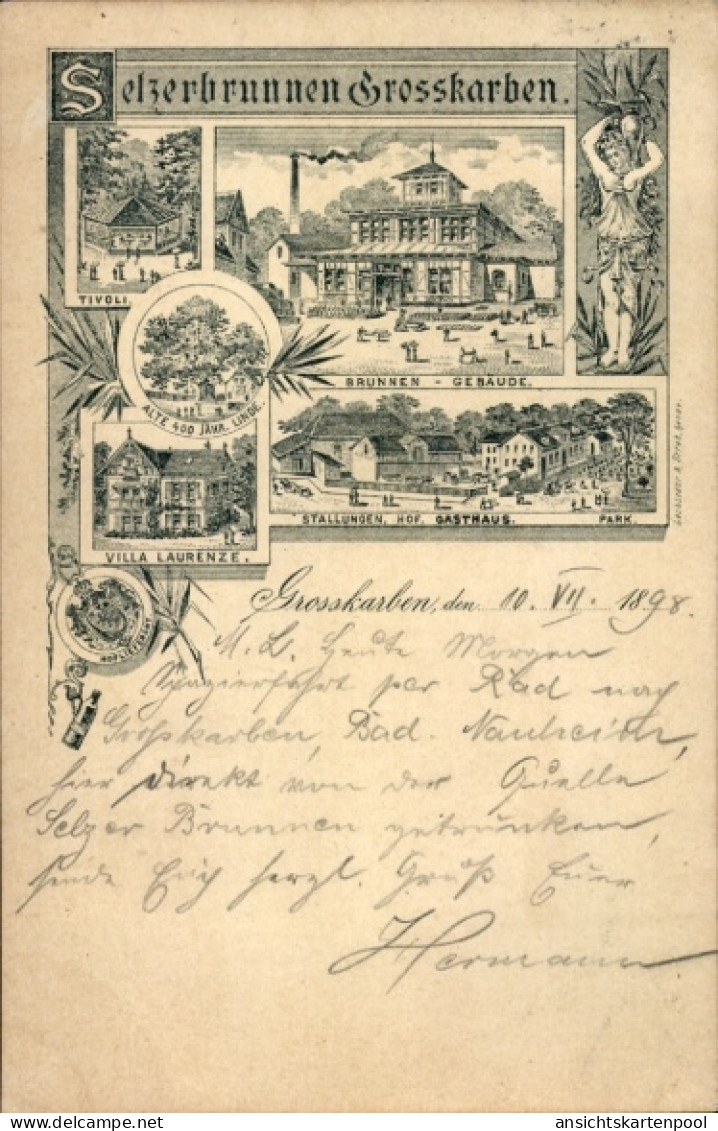 Selzerbrunnen Grosskarben.
TIVOLI.
BRUNNEN - GEBÄUDE.
ALTE 400 JÄHR. LINDE.
STALLUNGEN, HOF, GASTHAUS. PARK.
VILLA LAURENZE.
HOFLIEFERANT
Grosskarben, den 10. VII. 1898.
M. L. Heute Morgen
Spazierfahrt per Rad nach
Großkarben, Bad. Nauheim,
hier direkt von der Quelle
Selzer Brunnen getrunken,
sende Euch herzl. Gruß Euer
Hermann
delcampe.net
ansichtskartenpool